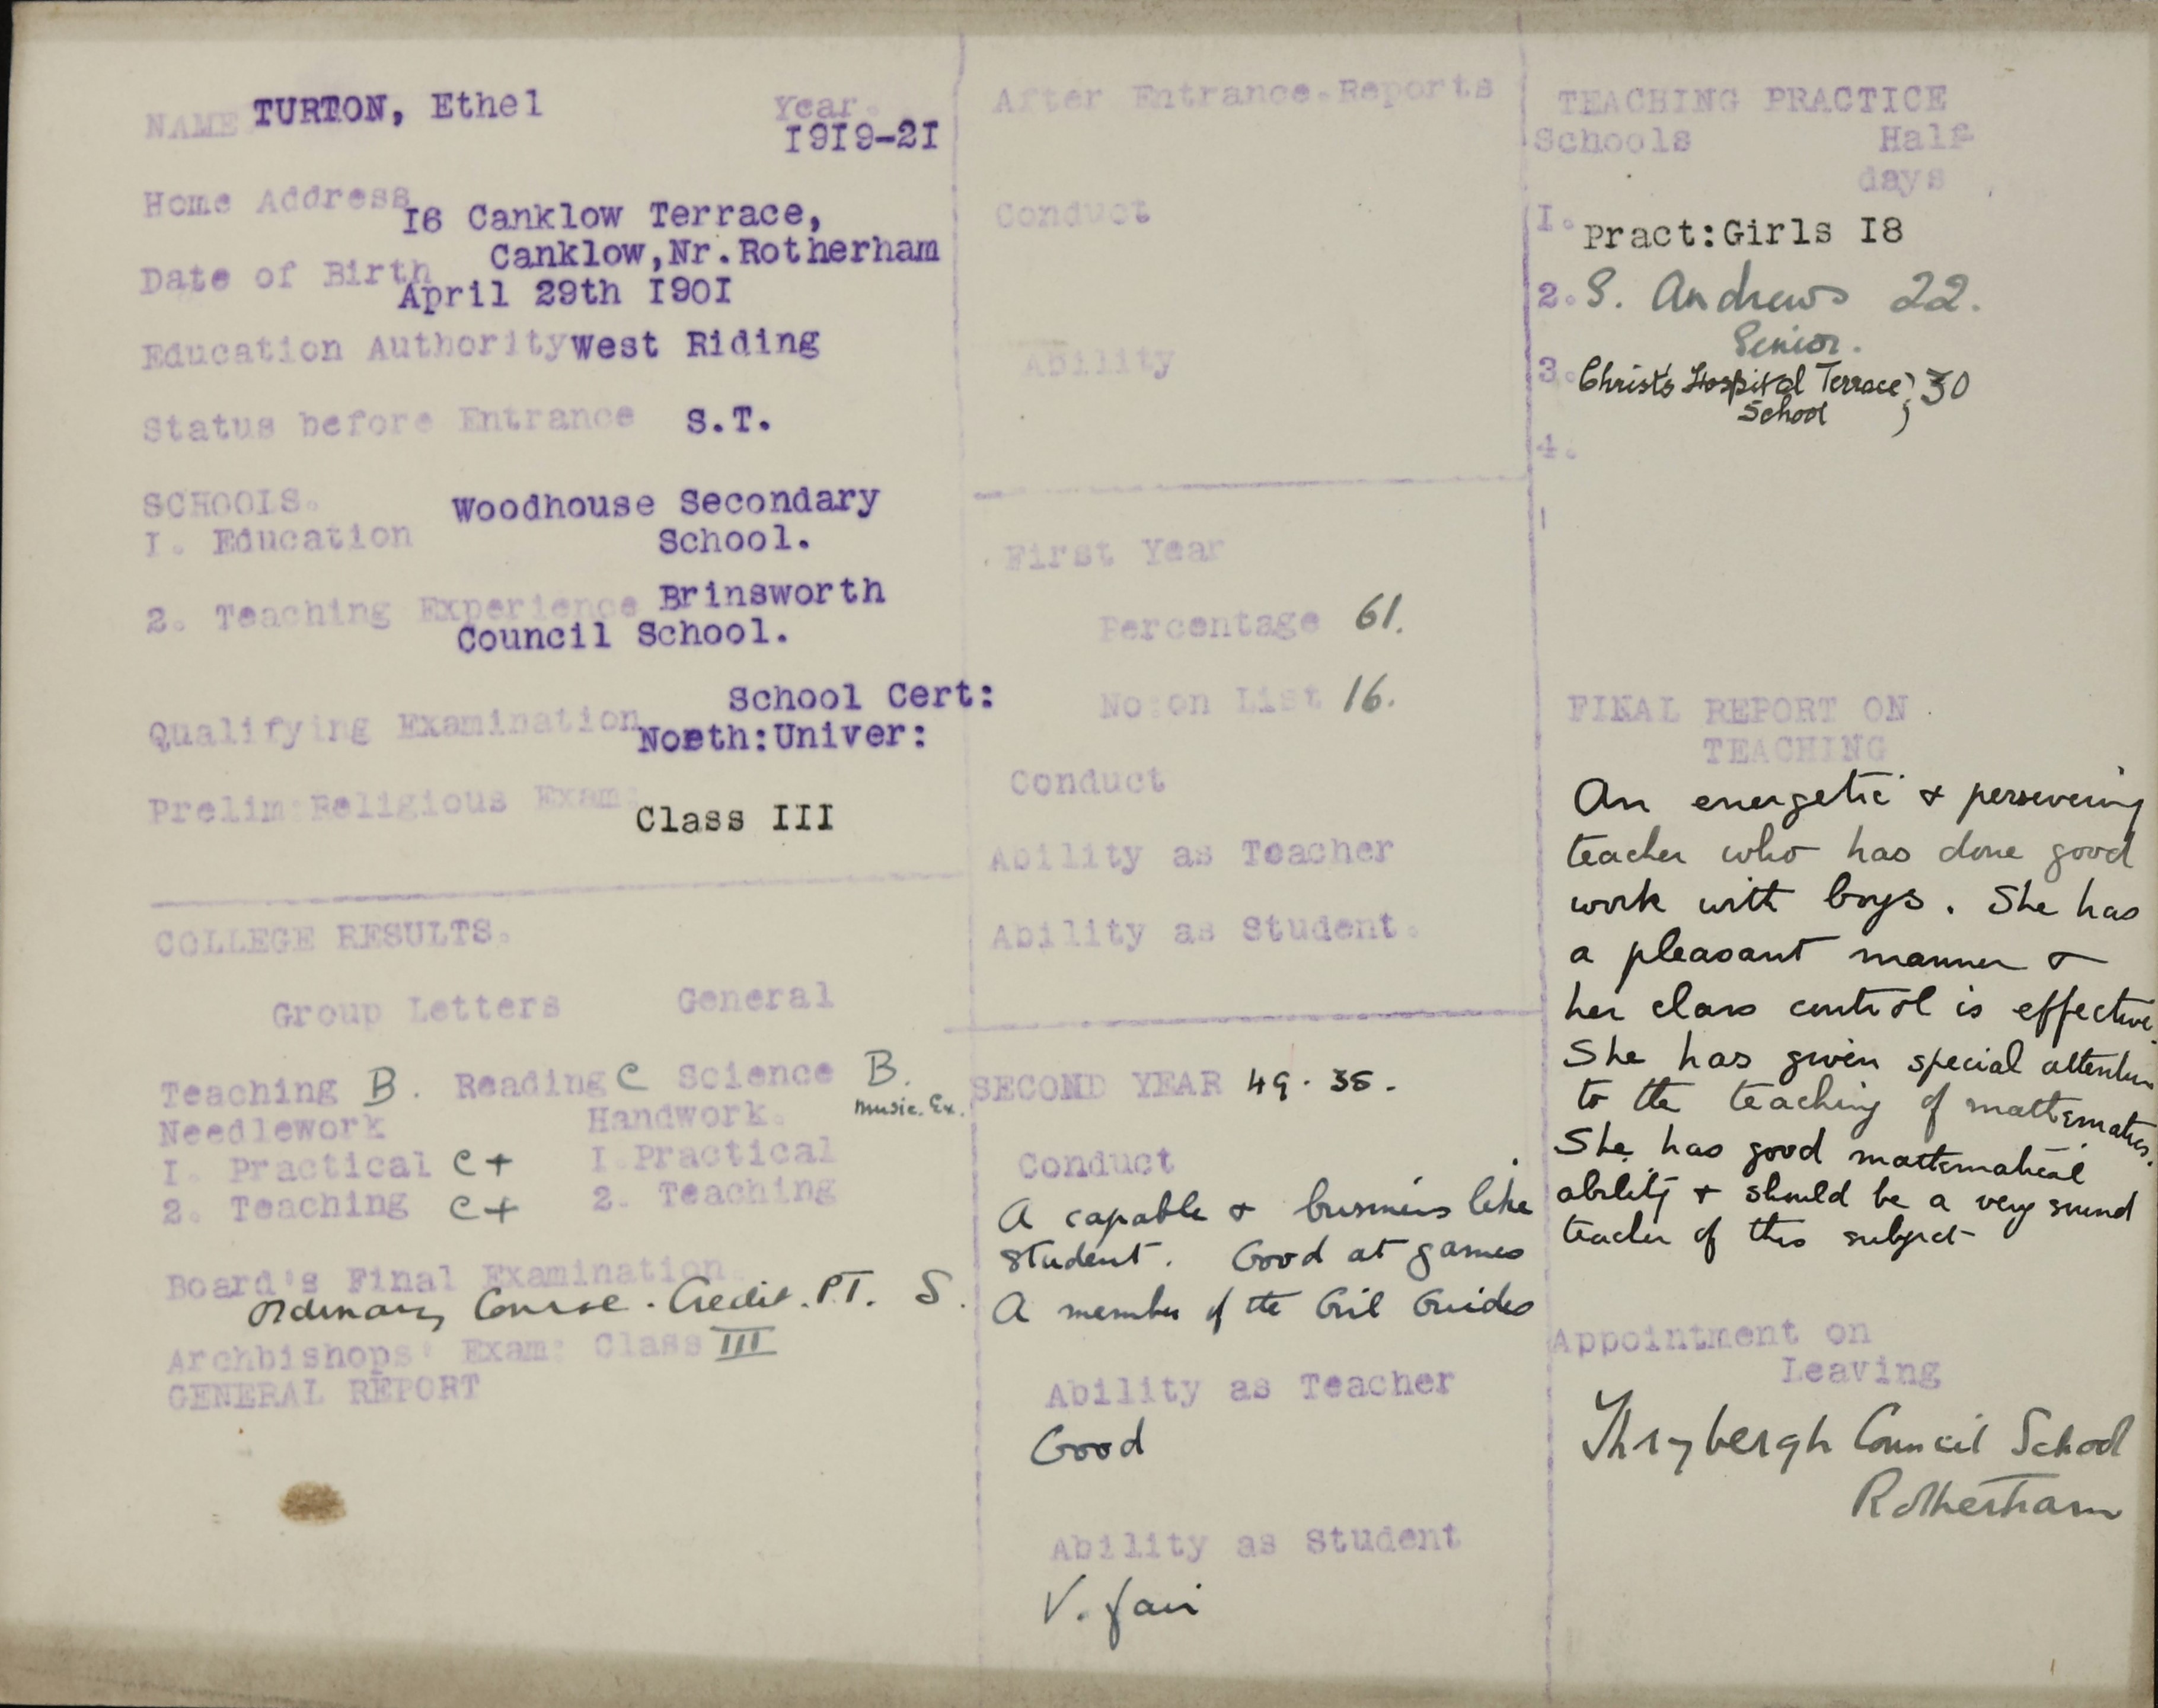 NAME TURTON, Ethel Year.
1919-21
Home Address
16 Canklow Terrace,
Canklow,Nr.Rotherham
Date of Birth
April 29th 1901
Education Authority West Riding
Status before Entrance S.T.
SCHOOLS.
1. Education Woodhouse Secondary
School.
2. Teaching Experience Brinsworth
Council School.
Qualifying Examination School Cert:
North:Univer:
Prelim:Religious Exam:
Class III
COLLEGE RESULTS.
Group Letters General
Teaching B. Reading C Science B.
Music. Ex.
Needlework Handwork.
1. Practical C+ 1.Practical
2. Teaching C+ 2. Teaching
Board's Final Examination
Ordinary Course. Credit. P.T. S.
Archbishops' Exam: Class III
GENERAL REPORT
After Entrance.Reports
Conduct
Ability
First Year
Percentage 61.
No:on List 16.
Conduct
Ability as Teacher
Ability as Student.
SECOND YEAR 49. 35.
Conduct
A capable & business like
student. Good at games
A member of the Girl Guides
Ability as Teacher
Good
Ability as Student
V. fair
TEACHING PRACTICE
Schools Half
days
1. Pract:Girls 18
2. S. Andrews 22.
Senior.
3. Christ's Hospital Terrace) 30
School )
4.
FINAL REPORT ON
TEACHING
An energetic & persevering
teacher who has done good
work with boys. She has
a pleasant manner &
her class control is effective.
She has given special attention
to the teaching of mathematics.
She has good mathematical
ability & should be a very sound
teacher of this subject
Appointment on
Leaving
Thrybergh Council School
Rotherham